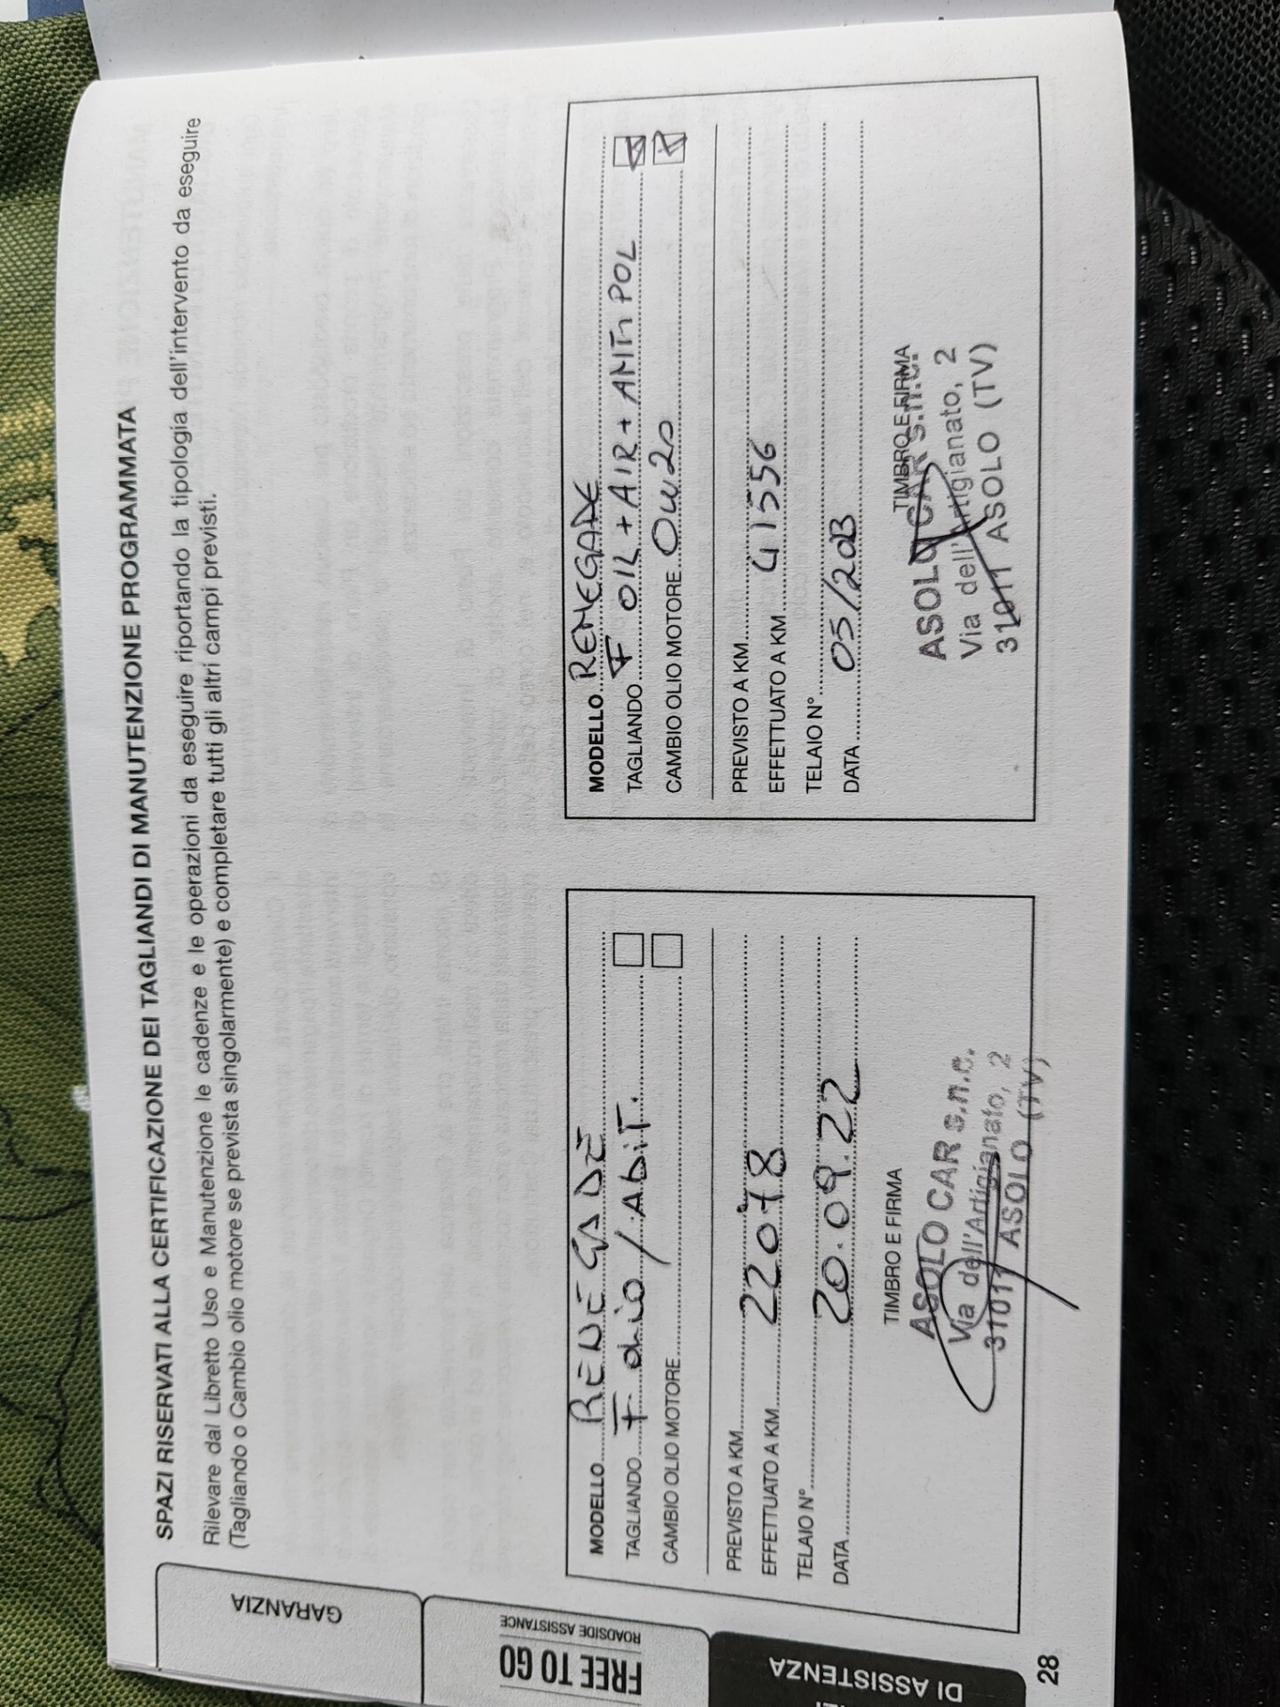 SPAZI RISERVATI ALLA CERTIFICAZIONE DEI TAGLIANDI DI MANUTENZIONE PROGRAMMATA
Rilevare dal Libretto Uso e Manutenzione le cadenze e le operazioni da eseguire riportando la tipologia dell'intervento da eseguire
(Tagliando o Cambio olio motore se prevista singolarmente) e completare tutti gli altri campi previsti.
MODELLO RENEGADE
TAGLIANDO F. olio / Abit.
CAMBIO OLIO MOTORE
PREVISTO A KM
EFFETTUATO A KM 22078
TELAIO N°
DATA 20.09.22
TIMBRO E FIRMA
ASOLO CAR s.n.c.
Via dell'Artigianato, 2
31011 ASOLO (TV)
MODELLO RENEGADE
TAGLIANDO F OIL + AIR + ANTI POL
CAMBIO OLIO MOTORE 0w20
PREVISTO A KM
EFFETTUATO A KM 41556
TELAIO N°
DATA 05/2023
TIMBRO E FIRMA
ASOLO CAR s.n.c.
Via dell'Artigianato, 2
31011 ASOLO (TV)
GARANZIA
FREE TO GO
ROADSIDE ASSISTANCE
DI ASSISTENZA
28